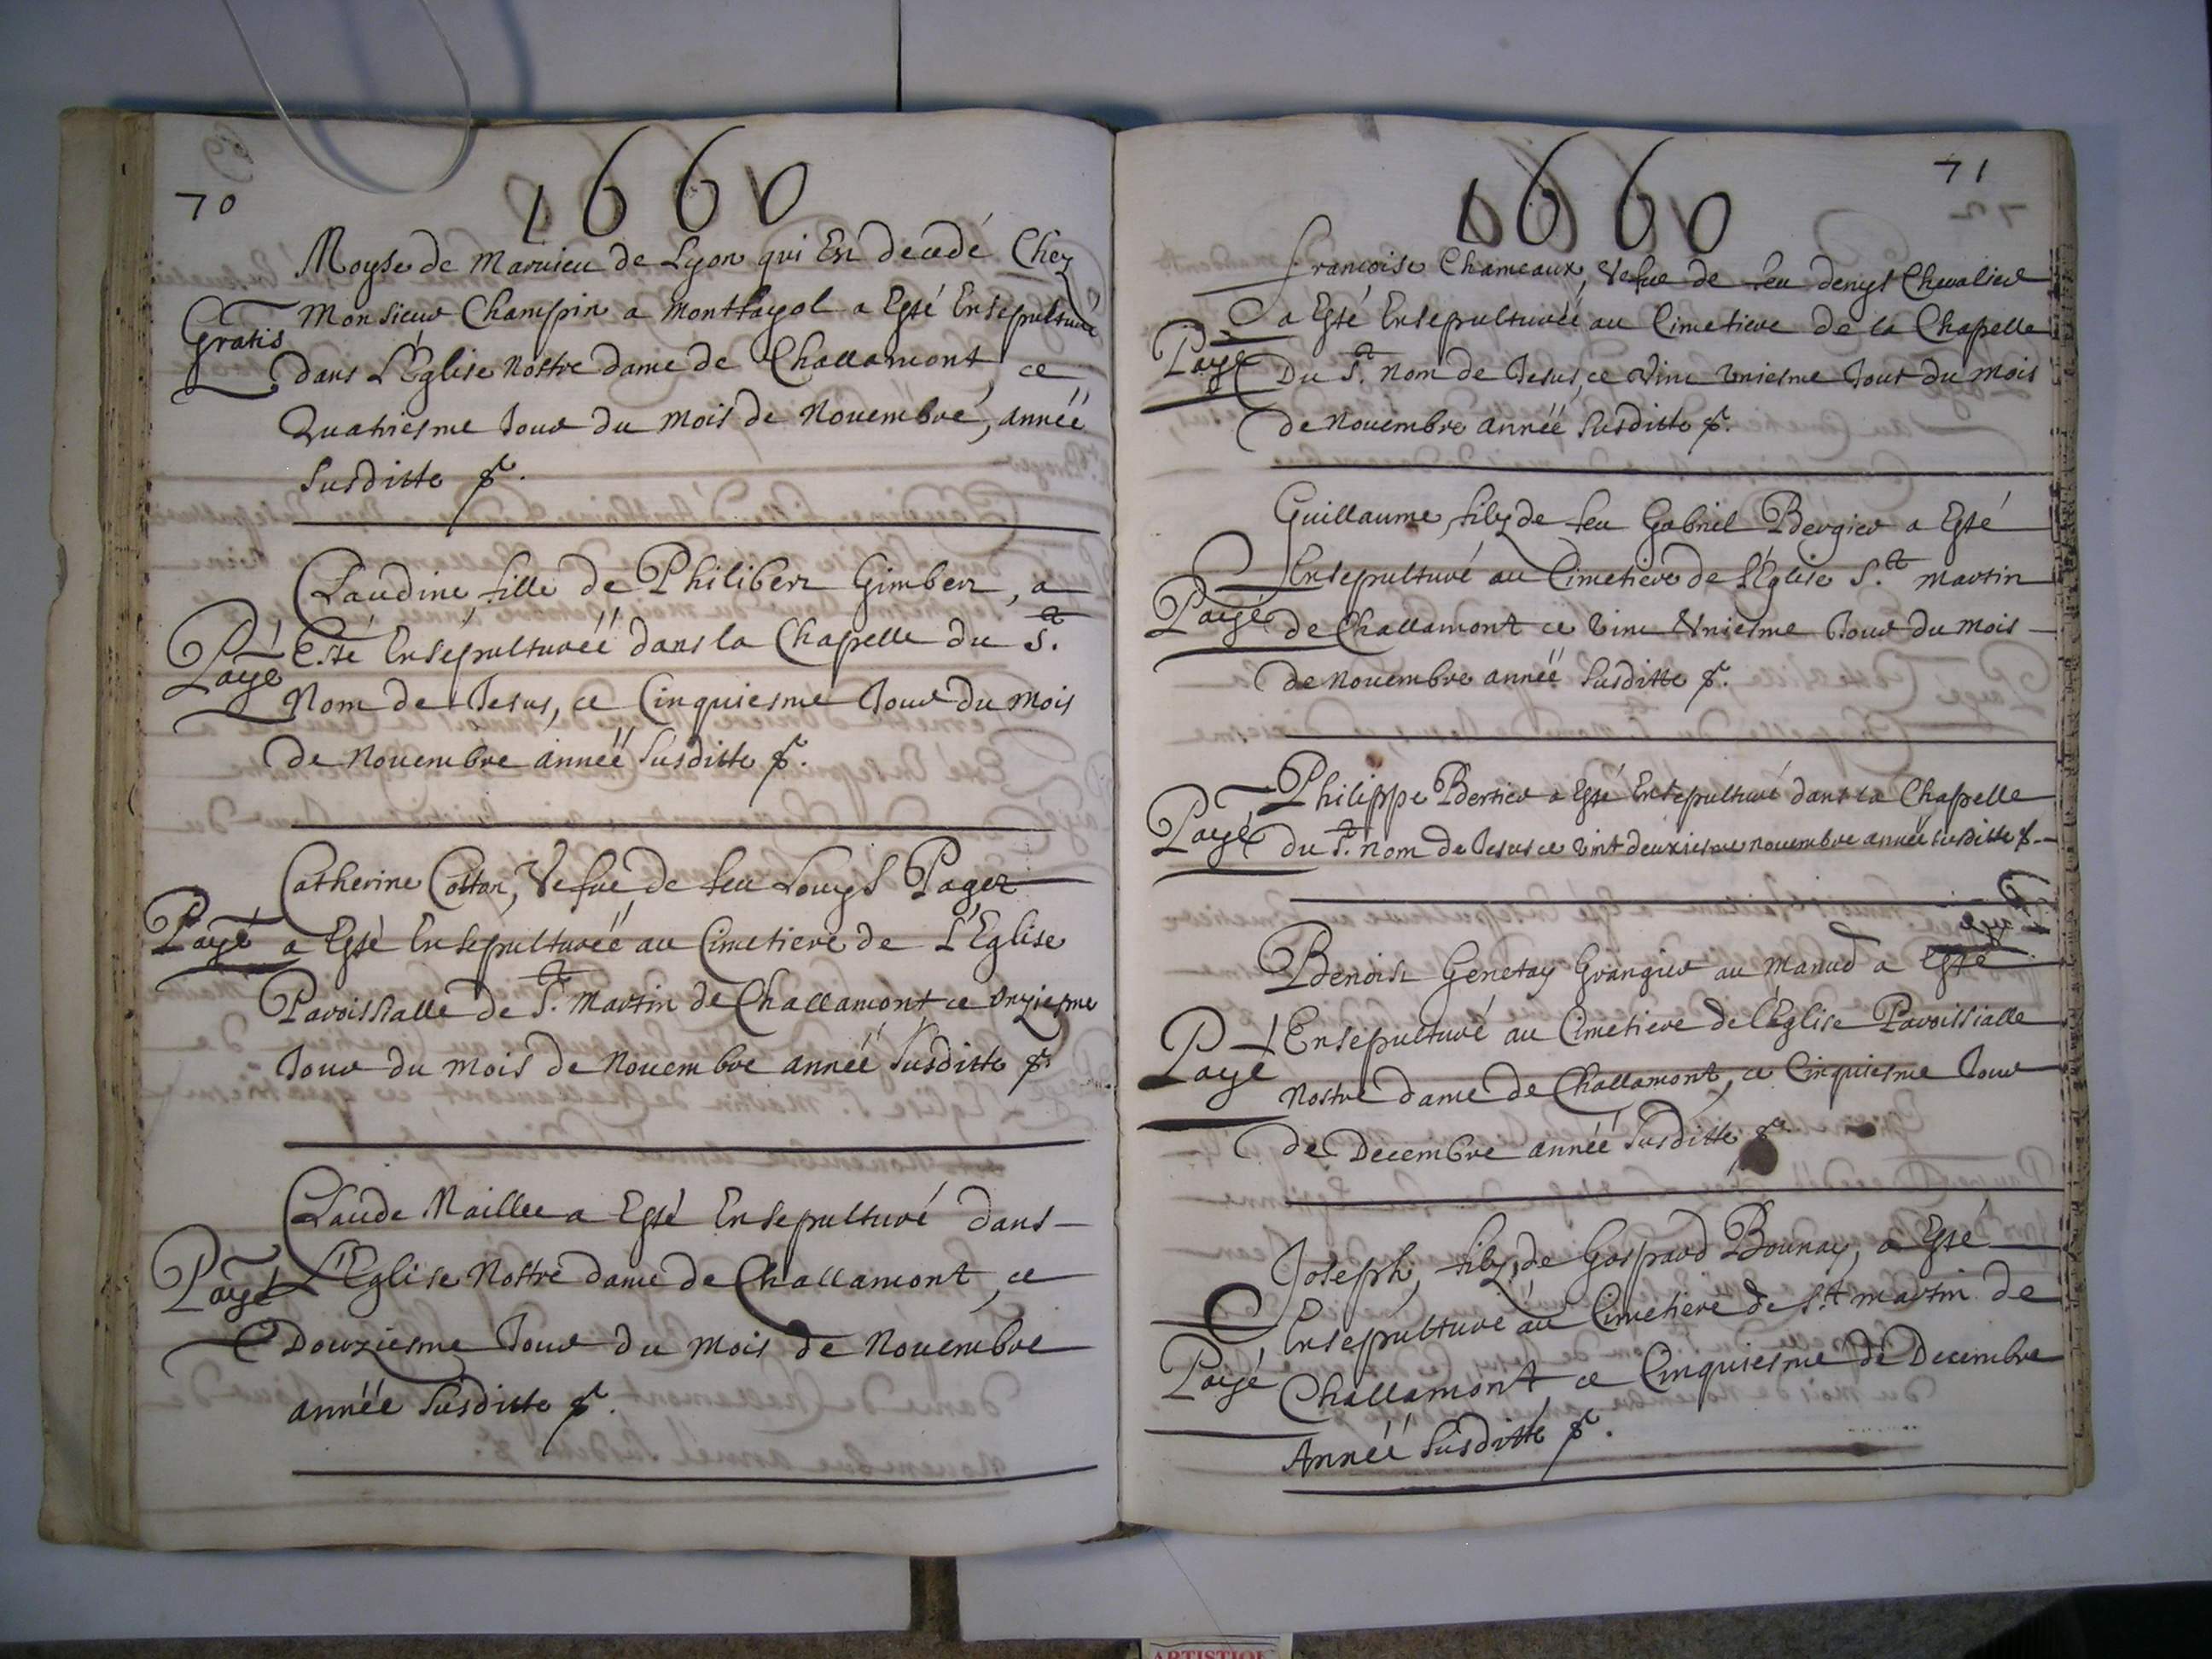 70
1660
Moyse de Marnieu de Lyon qui Est decedé Chez
Gratis
Monsieur Champin a Montfayol a Esté Ensepulturé
dans L'Église Nostre dame de Challamont, ce
Quatriesme Jour du mois de Nouembre, annéé
Susditte
Claudine fille de Philibert Gimbert, a
Payé
Esté Ensépulturéé dans la Chapelle du St.
Nom de Jesus, ce Cinquiesme Jour du mois
de Nouembre annéé Susditte
Catherine Cottar, Vefue de feu Louys Paget
Payé
a Esté Ensépulturéé au Cimetiere de L'Église
Paroissialle de St. Martin de Challamont ce Onziesme
Jour du mois de Nouembre annéé Susditte
Claude Maillet a Esté Ensepulturé dans
Payé
L'Eglise Nostre dame de Challamont, ce
Douziesme Jour du mois de Nouembre
annéé Susditte
71
1660
francoise Chameaux, Vefue de feu denys Cheualier
a Esté Ensepulturéé au Cimetiere de la Chapelle
Payé
Du St. nom de Jesus, ce Vint Vniesme Jour du mois
de Nouembre annéé Susditte
Guillaume, fily de feu Gabriel Bergier a Esté
Ensepulturé au Cimetiere de l'Église St. martin
Payé
de Challamont ce Vint Vniesme Jour du mois
de Nouembre annéé Susditte
Philippe Bertier a Esté Ensepulturé dans la Chapelle
Payé
du St. nom de Jesus ce Vint deuxiesme nouembre annéé susditte
Benoist Genetay Grangier au Manud a Esté
Payé
Ensepulturé au Cimetiere de l'Église Paroissialle
Nostre dame de Challamont, ce Cinquiesme Jour
de Decembre annéé Susditte
Joseph, fily de Gaspard Bounay, a Esté
Ensepulturé au Cimetiere de St. martin de
Payé
Challamont, ce Cinquiesme de Decembre
Annéé Susditte
ARTISTIQUE